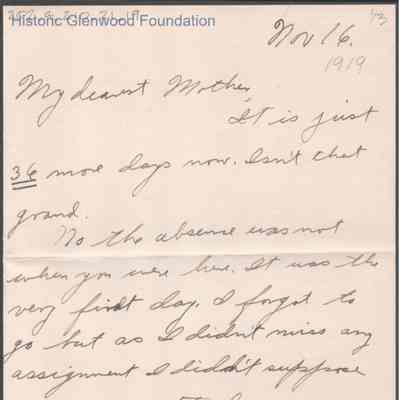 Historic Glenwood Foundation
Nov 16.
1919
My dearest Mother,
It is just
36 more days now. Isn't that
grand.
No the absense was not
when you were here. It was the
very first day. I forgot to
go but as I didn't miss any
assignment I didn't suppose